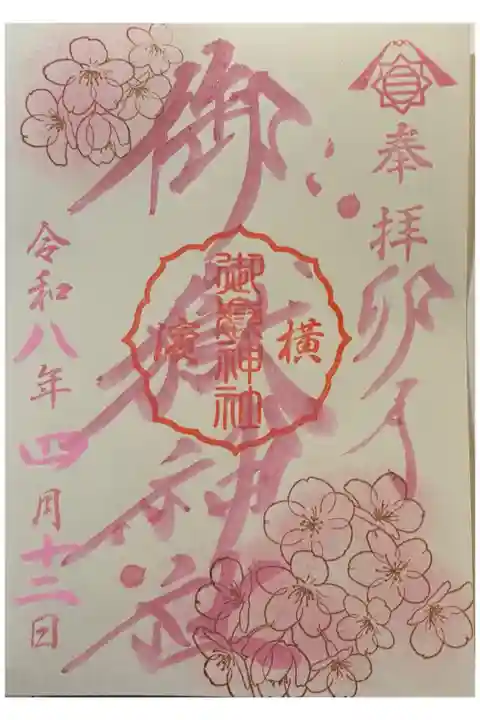 奉拝
卯月
御嶽神社
横濱
御嶽神社
令和八年四月十二日